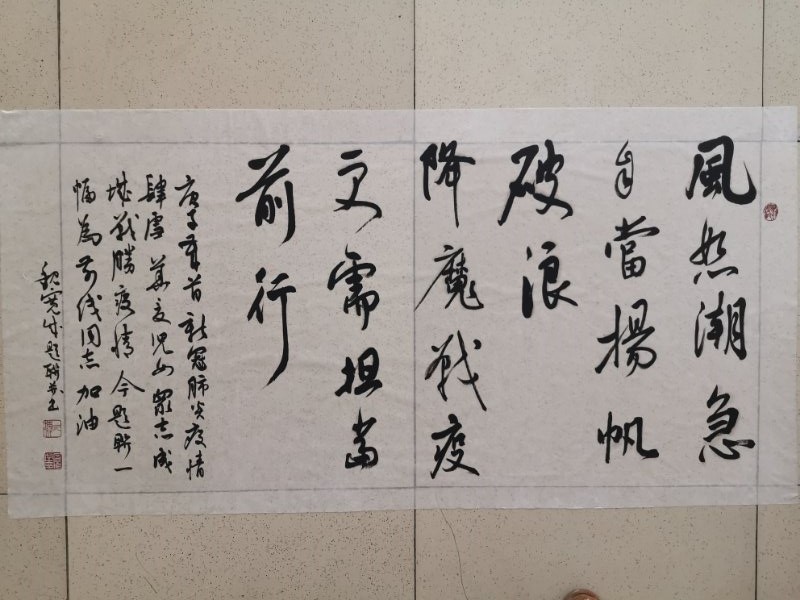 風怒潮急
自當揚帆
破浪
降魔戰疫
更需担当
前行
庚子年首新冠肺炎疫情
肆虐華夏儿女眾志成
城戰勝疫情今題联一
幅為前线同志加油
魏宽成題联并书